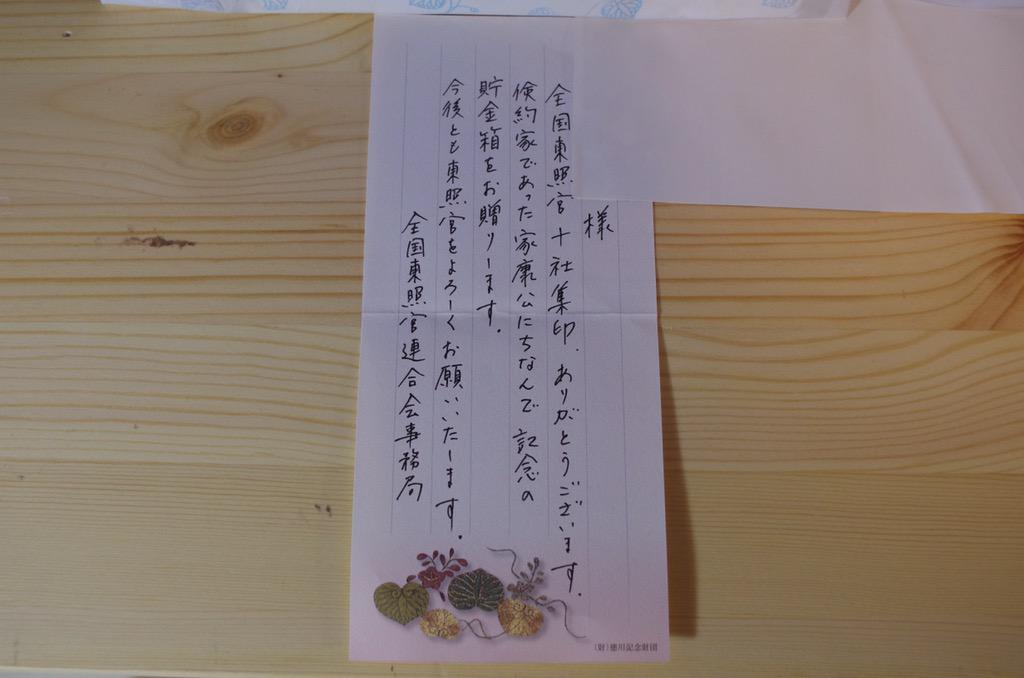 様
全国東照宮十社集印、ありがとうございます。
倹約家であった家康公にちなんで記念の
貯金箱をお贈りします。
今後とも東照宮をよろしくお願いいたします。
全国東照宮連合会事務局
(財)徳川記念財団